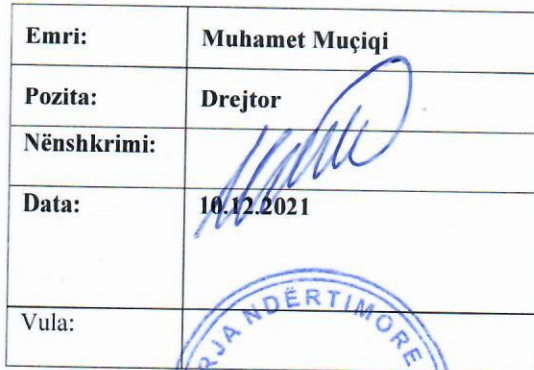 Emri: Muhamet Muçiqi
Pozita: Drejtor
Nënshkrimi:
Data: 10.12.2021
Vula:
RJA NDËRTIMORE